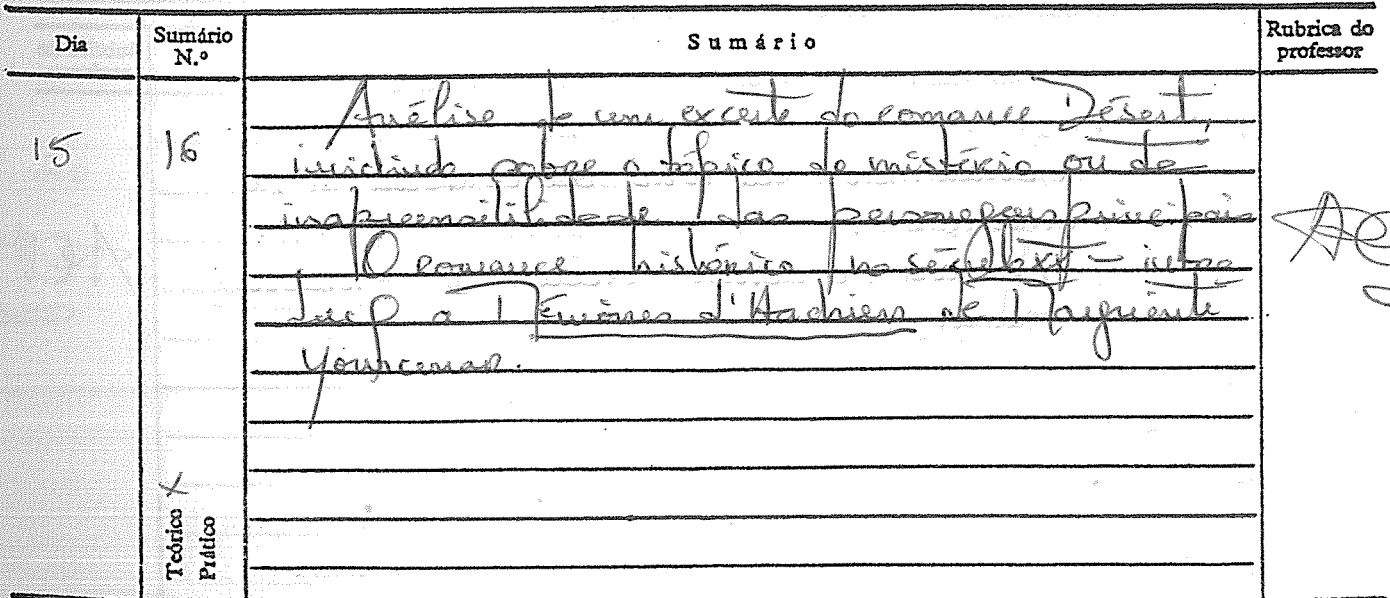 Dia Sumário N.º Sumário Rubrica do professor
15 16 Análise de um excerto do romance Désert,
incidindo sobre o tópico do mistério ou da
inapreensibilidade das personagens principais
O romance histórico no século XX – intro
dução a Mémoires d'Hadrien de Marguerite
Yourcenar.
X
Teórico
Prático